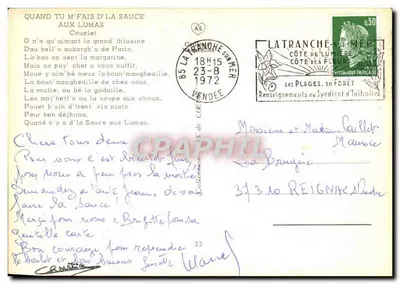 QUAND TU M'FAIS D'LA SAUCE
AUX LUMAS
Couplet
O n'a qu'aimant la grand' thiusine
Dau bell's aubargh's de Paris,
Là-bas on sent la margarine.
Mais un pay' cher o vous suffit,
Moue y aim'bé meux la boun'mangheaille.
La boun'mangheaille de chez nous,
La routie, ou bé le gadaille,
Les moj'hett's ou la soupe aux choux,
Pouet b'sin d'trent' six piats
Peur ben déjhuna,
Quand ô y a d'la Sauce aux Lumas.
85 LA TRANCHE SUR MER
18H15
23-8
1972
VENDEE
LA TRANCHE-SUR-MER
CÔTE DE LUMIÈRE
CÔTE DES FLEURS
SES PLAGES, SA FORÊT
Renseignements au Syndicat d'Initiative
0,50
REPUBLIQUE FRANÇAISE
Chers tous deux
Pour vous c'est bientôt fini
pour nous à peu près la moitié
Demandez à tante Jeanne de vous
faire la sauce!
Merci pour nous à Brigitte pour sa
gentille carte
Bon courage pour reprendre
le boulot et bons baisers
Monsieur et Madame Caillet
Maurice
La Bruyère
37310 REIGNAC s/Indre
22
CPARAMA.COM